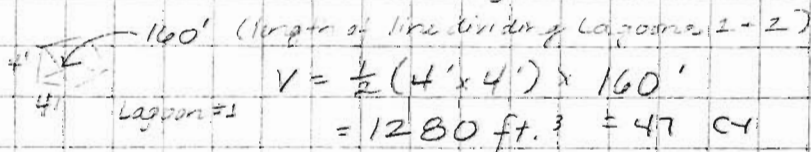 160' (length of line dividing Lagoons 1 - 2)
4'
4'
Lagoon #1
V = 1/2 (4' x 4') x 160'
= 1280 ft.³ = 47 CY